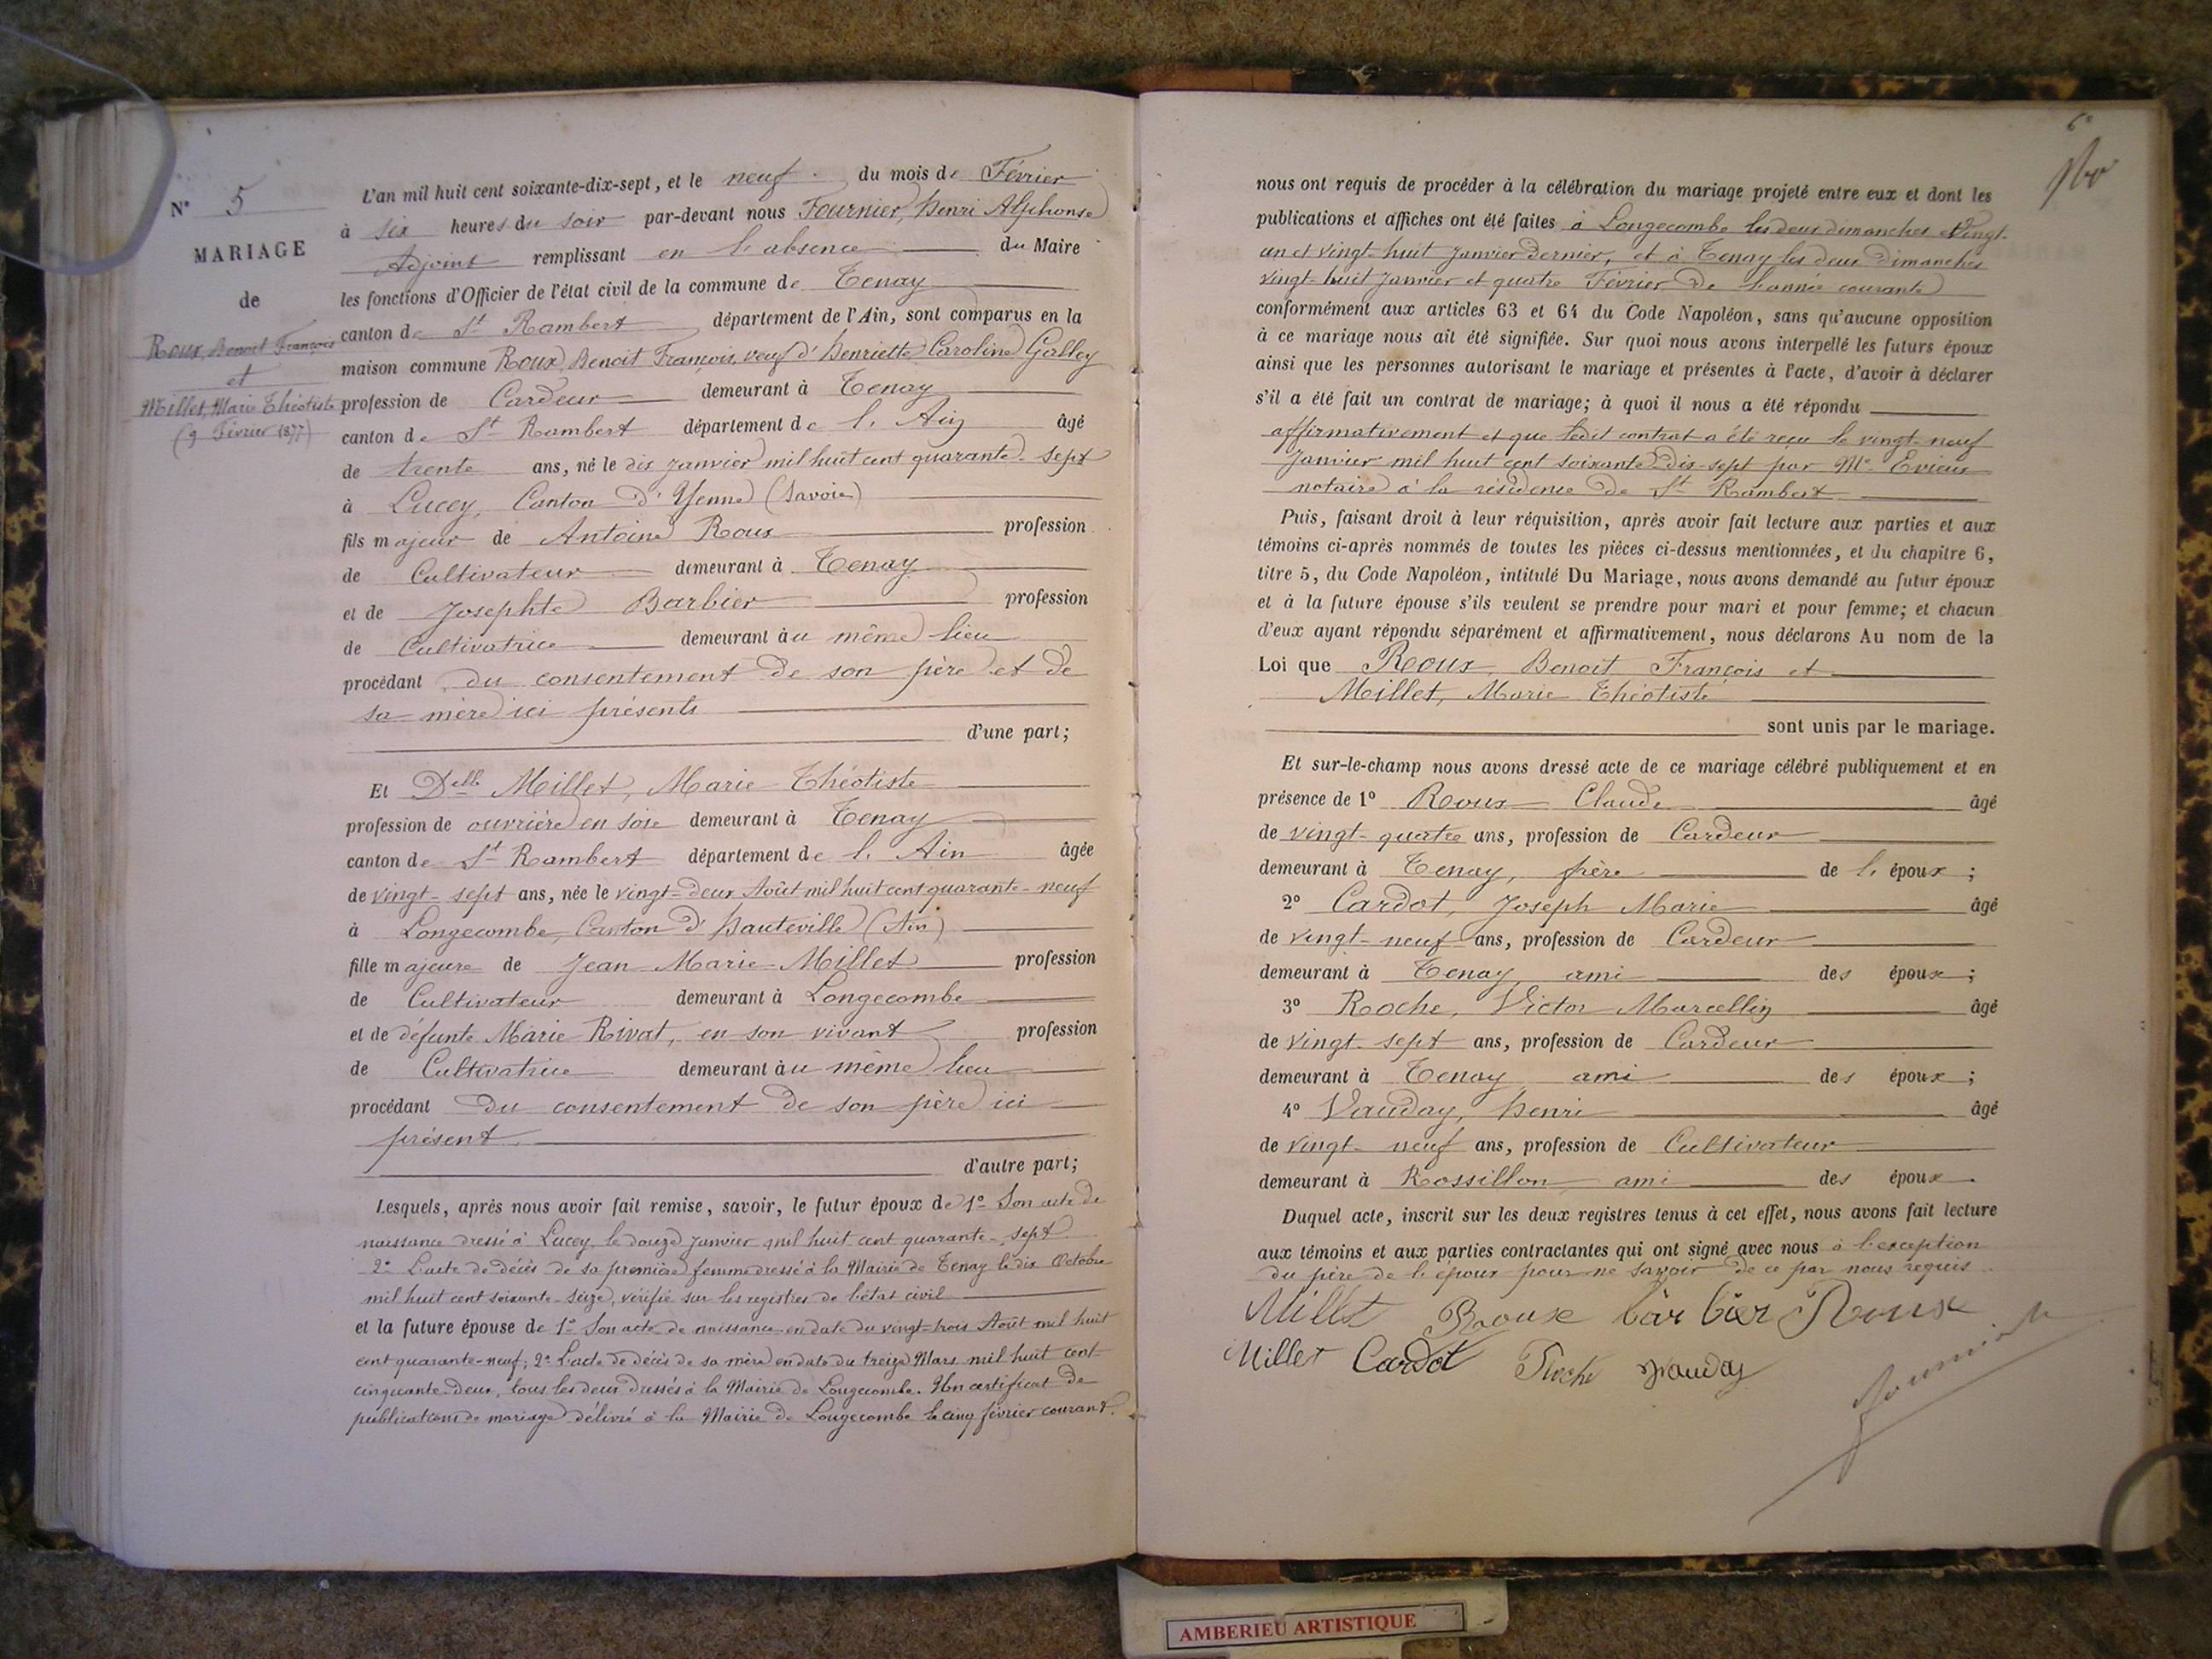 N° 5
MARIAGE
de
Roux, Benoit François
et
Millet, Marie Théotiste
(9 Février 1877)
L'an mil huit cent soixante-dix-sept, et le neuf du mois de Février
à six heures du soir par-devant nous Fournier, Henri Alphonse
Adjoint remplissant en l'absence du Maire
les fonctions d'Officier de l'état civil de la commune de Tenay
canton de St Rambert département de l'Ain, sont comparus en la
maison commune Roux, Benoit François, veuf d'Henriette Caroline Galley
profession de Cardeur demeurant à Tenay
canton de St Rambert département de l'Ain âgé
de trente ans, né le dix janvier mil huit cent quarante-sept
à Lucey, Canton d'Yenne (Savoie)
fils majeur de Antoine Roux profession
de Cultivateur demeurant à Tenay
et de Josephte Barbier profession
de Cultivatrice demeurant au même lieu
procédant du consentement de son père et de
sa mère ici présents
d'une part;
Et Delle Millet, Marie Théotiste
profession de ouvrière en soie demeurant à Tenay
canton de St Rambert département de l'Ain âgée
de vingt-sept ans, née le vingt-deux Août mil huit cent quarante-neuf
à Longecombe, Canton d'Hauteville (Ain)
fille majeure de Jean Marie Millet profession
de Cultivateur demeurant à Longecombe
et de défunte Marie Rivat, en son vivant profession
de Cultivatrice demeurant au même lieu
procédant du consentement de son père ici
présent
d'autre part;
Lesquels, après nous avoir fait remise, savoir, le futur époux de 1° Son acte de
naissance dressé à Lucey le douze janvier mil huit cent quarante-sept
2° L'acte de décès de sa première femme dressé à la Mairie de Tenay le dix Octobre
mil huit cent soixante-seize, vérifié sur les registres de l'état civil
et la future épouse de 1° Son acte de naissance en date du vingt-trois Août mil huit
cent quarante-neuf; 2° L'acte de décès de sa mère en date du treize Mars mil huit cent
cinquante-deux, tous les deux dressés à la Mairie de Longecombe. Un certificat de
publications de mariage délivré à la Mairie de Longecombe le cinq février courant.
6e
nous ont requis de procéder à la célébration du mariage projeté entre eux et dont les
publications et affiches ont été faites à Longecombe les deux dimanches vingt-
un et vingt-huit Janvier dernier, et à Tenay les deux Dimanches
vingt-huit Janvier et quatre Février de l'année courante
conformément aux articles 63 et 64 du Code Napoléon, sans qu'aucune opposition
à ce mariage nous ait été signifiée. Sur quoi nous avons interpellé les futurs époux
ainsi que les personnes autorisant le mariage et présentes à l'acte, d'avoir à déclarer
s'il a été fait un contrat de mariage; à quoi il nous a été répondu
affirmativement et que ledit contrat a été reçu le vingt-neuf
Janvier mil huit cent soixante-dix-sept par Me Evieux
notaire à la résidence de St Rambert
Puis, faisant droit à leur réquisition, après avoir fait lecture aux parties et aux
témoins ci-après nommés de toutes les pièces ci-dessus mentionnées, et du chapitre 6,
titre 5, du Code Napoléon, intitulé Du Mariage, nous avons demandé au futur époux
et à la future épouse s'ils veulent se prendre pour mari et pour femme; et chacun
d'eux ayant répondu séparément et affirmativement, nous déclarons Au nom de la
Loi que Roux, Benoit François et
Millet, Marie Théotiste
sont unis par le mariage.
Et sur-le-champ nous avons dressé acte de ce mariage célébré publiquement et en
présence de 1° Roux Claude âgé
de vingt-quatre ans, profession de Cardeur
demeurant à Tenay, frère de l'époux;
2° Cardot, Joseph Marie âgé
de vingt-neuf ans, profession de Cardeur
demeurant à Tenay, ami des époux;
3° Roche, Victor Marcellin âgé
de vingt-sept ans, profession de Cardeur
demeurant à Tenay ami des époux;
4° Vauday, Henri âgé
de vingt-neuf ans, profession de Cultivateur
demeurant à Rossillon ami des époux.
Duquel acte, inscrit sur les deux registres tenus à cet effet, nous avons fait lecture
aux témoins et aux parties contractantes qui ont signé avec nous à l'exception
du père de l'époux pour ne savoir de ce par nous requis
Millet Roux barbier Roux
Millet Cardot Roche Vauday
Fournier
AMBERIEU ARTISTIQUE